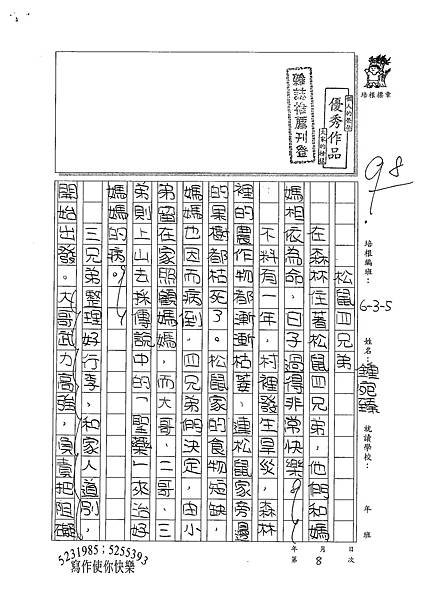 培根標章
優秀作品
雜誌推薦刊登
98
培根編班：6-3-5
姓名：鍾宛臻
就讀學校：
年 班
年 月 日
第 8 次
松鼠四兄弟
在森林住著松鼠四兄弟，他們和媽
媽相依為命，日子過得非常快樂。
不料有一年，村裡發生旱災，森林
裡的農作物都漸漸枯萎，連松鼠家旁邊
的果樹都枯死了。松鼠家的食物短缺，
媽媽也因而病倒，四兄弟們決定，由小
弟留在家照顧媽媽，而大哥、二哥、三
弟則上山去採傳說中的「聖藥」來治好
媽媽的病。
三兄弟整理好行李，和家人道別，
開始出發。大哥武力高強，負責把阻礙
5231985；5255393
寫作使你快樂